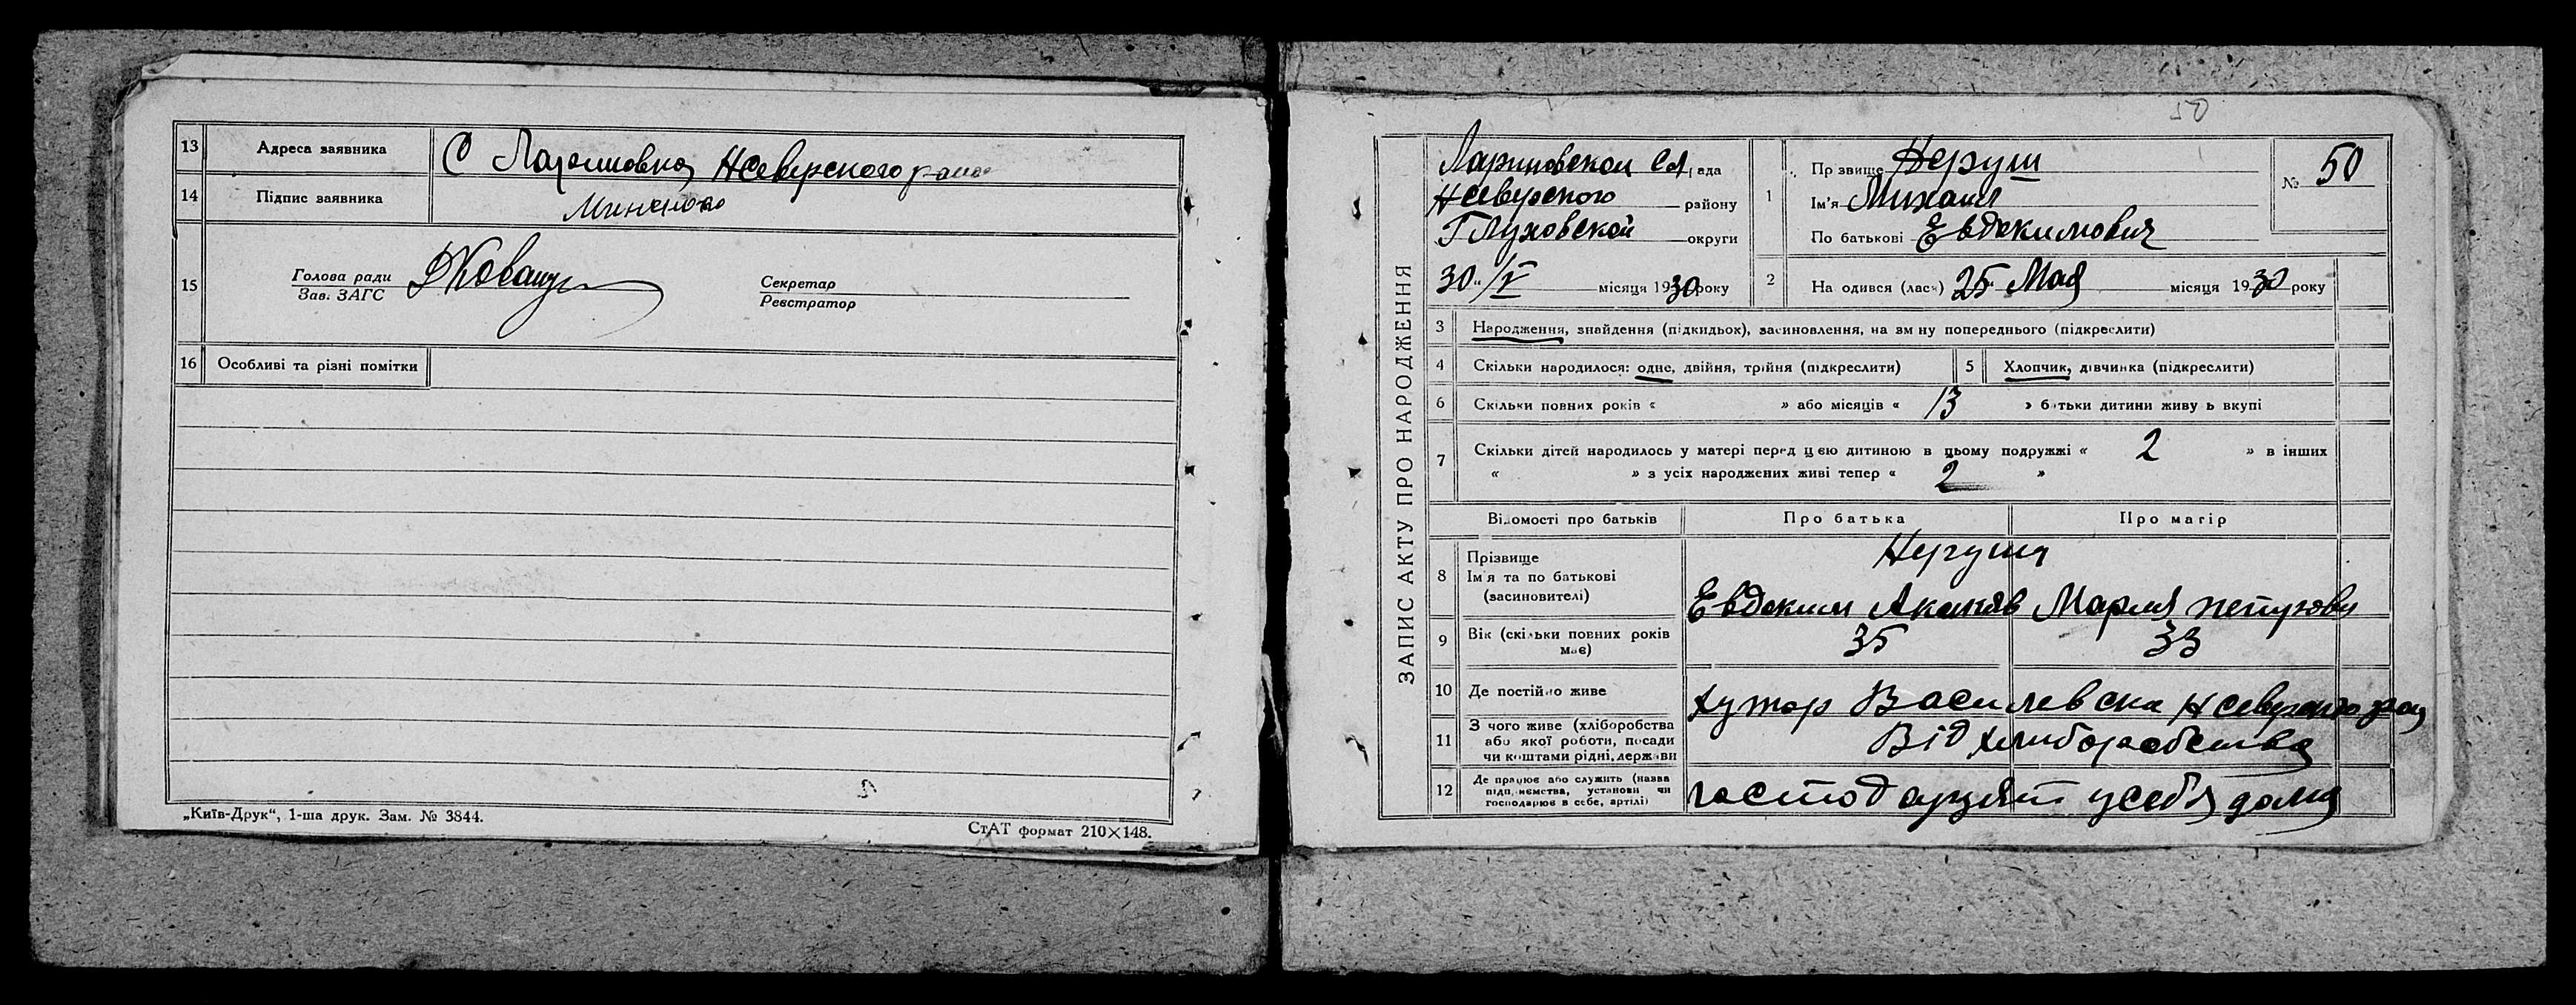 13 Адреса заявника С Н Северского
14 Підпис заявника
15 Голова ради
Зав. ЗАГС
Секретар
Реєстратор
16 Особливі та різні помітки
„Київ-Друк“, 1-ша друк. Зам. № 3844.
СтАТ формат 210×148.
50
ЗАПИС АКТУ ПРО НАРОДЖЕННЯ
Лариновской Сл рада
Н Северского району
Глуховской округи
30/V місяця 1930 року
1 Прізвище Неруш
Ім'я Михаил
По батькові Евдокимович
№ 50
2 Народився (лася) 25 Мая місяця 1930 року
3 Народження, знайдення (підкидьок), засиновлення, на зміну попереднього (підкреслити)
4 Скільки народилося: одне, двійня, трійня (підкреслити)
5 Хлопчик, дівчинка (підкреслити)
6 Скільки повних років « » або місяців « 13 » батьки дитини живуть вкупі
7 Скільки дітей народилось у матері перед цією дитиною в цьому подружжі « 2 » в інших
« » з усіх народжених живі тепер « 2 »
Відомості про батьків Про батька Про матір
8 Прізвище
Ім'я та по батькові
(засиновителі)
Евдоким Мария
9 Вік (скільки повних років
має)
35 33
10 Де постійно живе хутор Василевска Н Северского
11 З чого живе (хліборобства
або якої роботи, посади
чи коштами рідні, держави
Від
12 Де працює або служить (назва
підприємства, установи чи
господарює в себе, артілі)
у себя дома